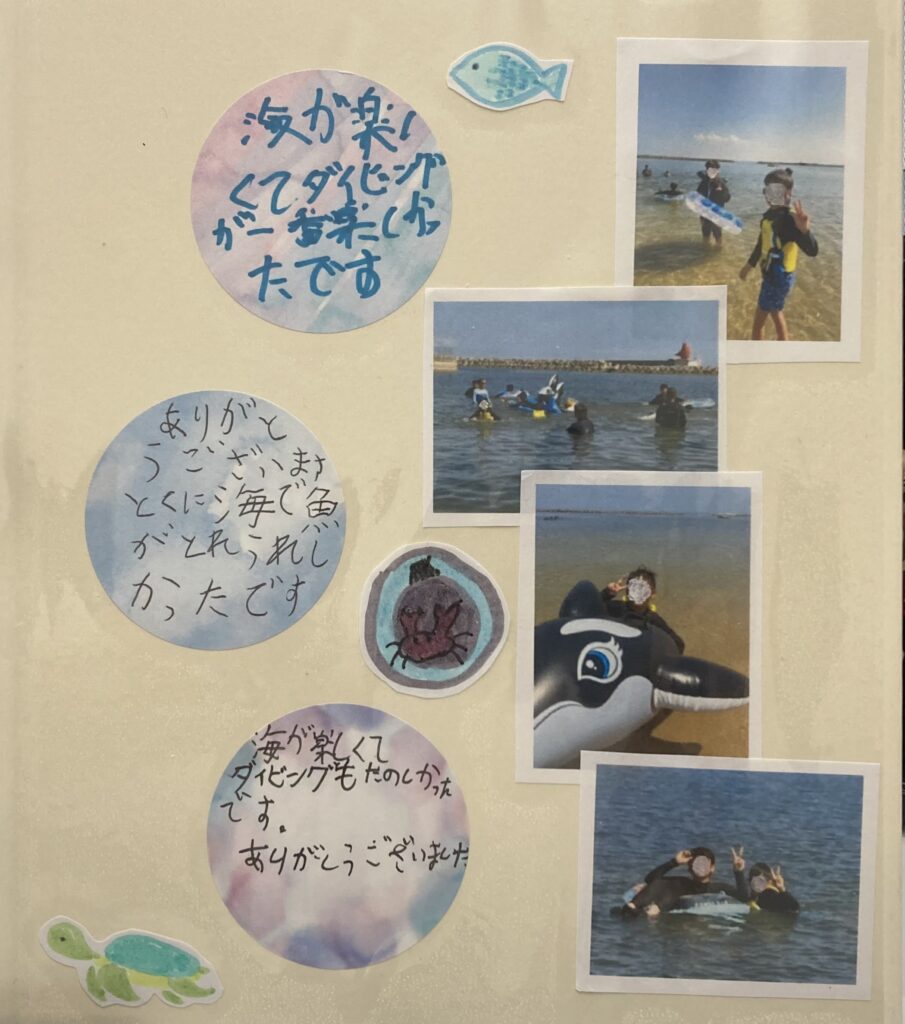 海が楽し
くてダイビング
が一番楽しかっ
たです
ありがと
うございます
とくに海で魚
がとれうれし
かったです
海が楽しくて
ダイビングもたのしかった
です。
ありがとうございました